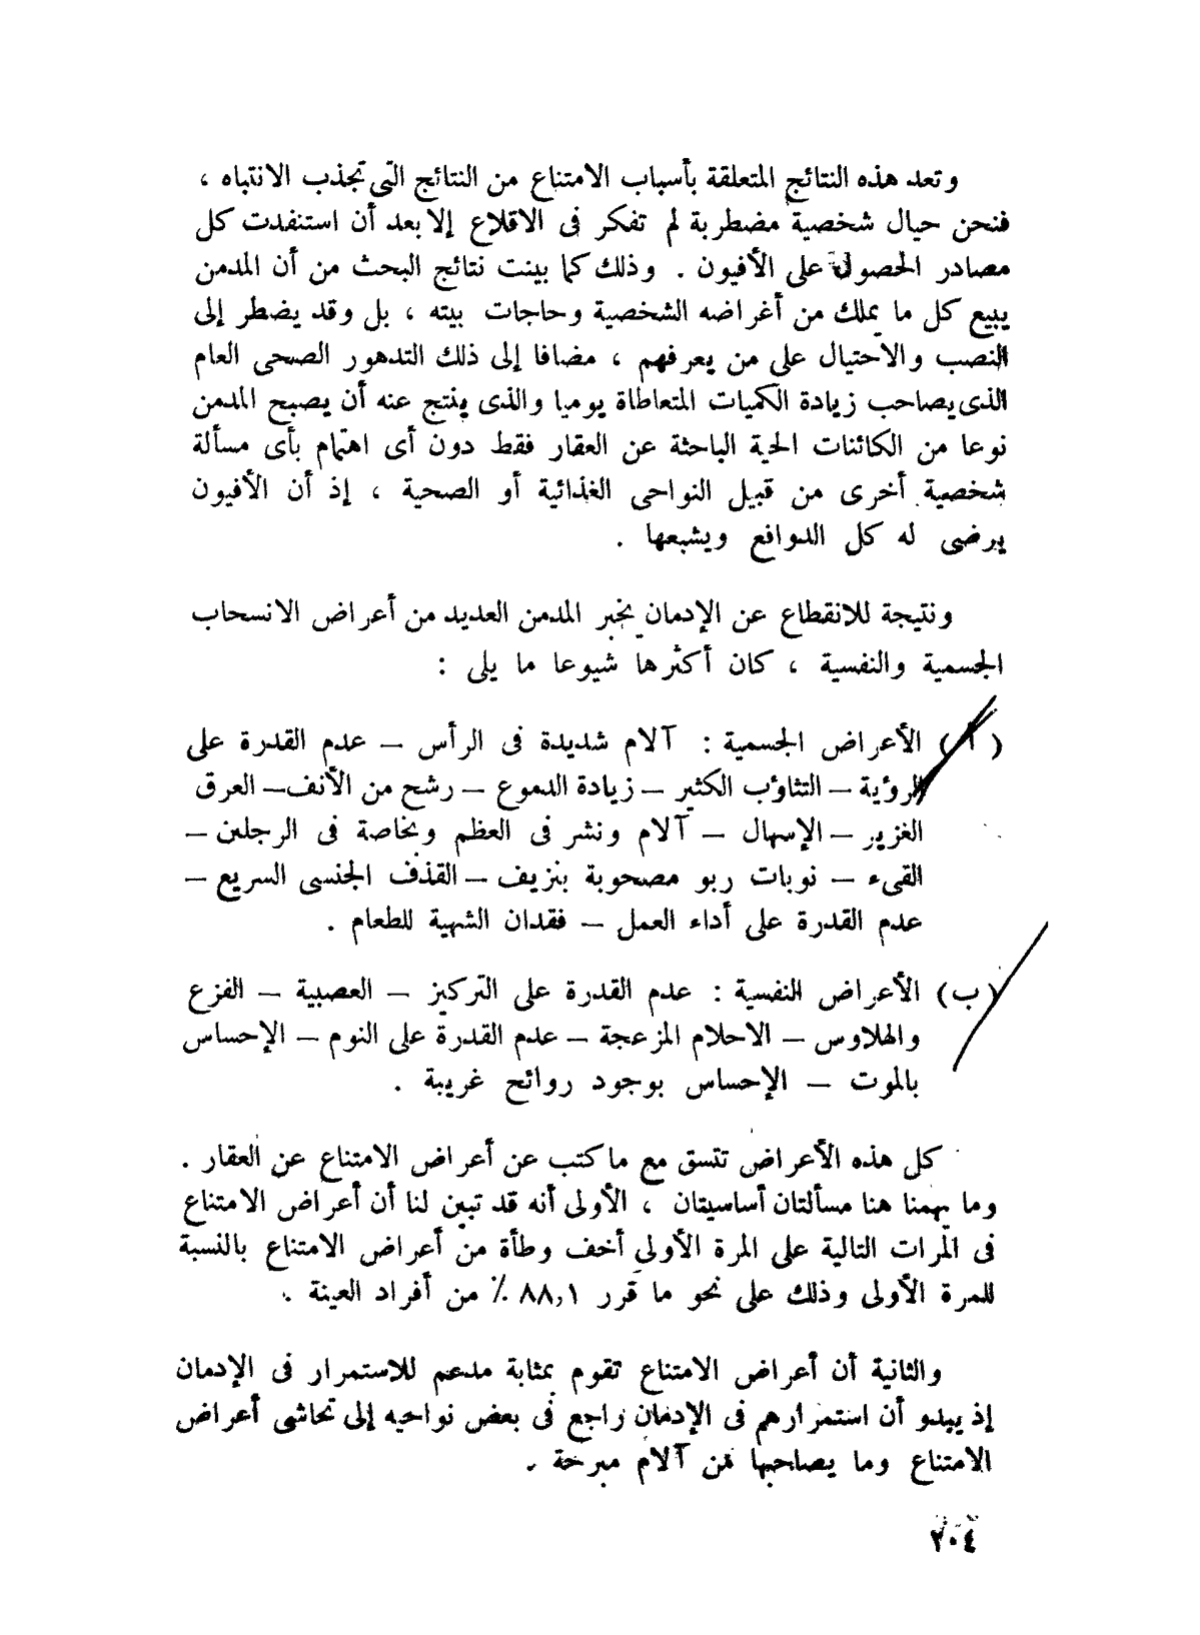 وتعد هذه النتائج المتعلقة بأسباب الامتناع من النتائج التى تجذب الانتباه ،
فنحن حيال شخصية مضطربة لم تفكر فى الاقلاع إلا بعد أن استنفدت كل
مصادر الحصول على الأفيون . وذلك كما بينت نتائج البحث من أن المدمن
يبيع كل ما يملك من أغراضه الشخصية وحاجات بيته ، بل وقد يضطر إلى
النصب والاحتيال على من يعرفهم ، مضافا إلى ذلك التدهور الصحى العام
الذى يصاحب زيادة الكميات المتعاطاة يوميا والذى ينتج عنه أن يصبح المدمن
نوعا من الكائنات الحية الباحثة عن العقار فقط دون أى اهتمام بأى مسألة
شخصية أخرى من قبيل النواحى الغذائية أو الصحية ، إذ أن الأفيون
يرضى له كل الدوافع ويشبعها .
ونتيجة للانقطاع عن الإدمان يخبر المدمن العديد من أعراض الانسحاب
الجسمية والنفسية ، كان أكثرها شيوعا ما يلى :
( أ ) الأعراض الجسمية : آلام شديدة فى الرأس – عدم القدرة على
الرؤية – التثاؤب الكثير – زيادة الدموع – رشح من الأنف – العرق
الغزير – الإسهال – آلام ونشر فى العظم وبخاصة فى الرجلين –
القىء – نوبات ربو مصحوبة بنزيف – القذف الجنسى السريع –
عدم القدرة على أداء العمل – فقدان الشهية للطعام .
(ب) الأعراض النفسية : عدم القدرة على التركيز – العصبية – الفزع
والهلاوس – الاحلام المزعجة – عدم القدرة على النوم – الإحساس
بالموت – الإحساس بوجود روائح غريبة .
كل هذه الأعراض تتسق مع ما كتب عن أعراض الامتناع عن العقار .
وما يهمنا هنا مسألتان أساسيتان ، الأولى أنه قد تبين لنا أن أعراض الامتناع
فى المرات التالية على المرة الأولى أخف وطأة من أعراض الامتناع بالنسبة
للمرة الأولى وذلك على نحو ما قرر ٨٨,١ ٪ من أفراد العينة .
والثانية أن أعراض الامتناع تقوم بمثابة مدعم للاستمرار فى الإدمان
إذ يبدو أن استمرارهم فى الإدمان راجع فى بعض نواحيه إلى تحاشى أعراض
الامتناع وما يصاحبها من آلام مبرحة .
٢٠٤